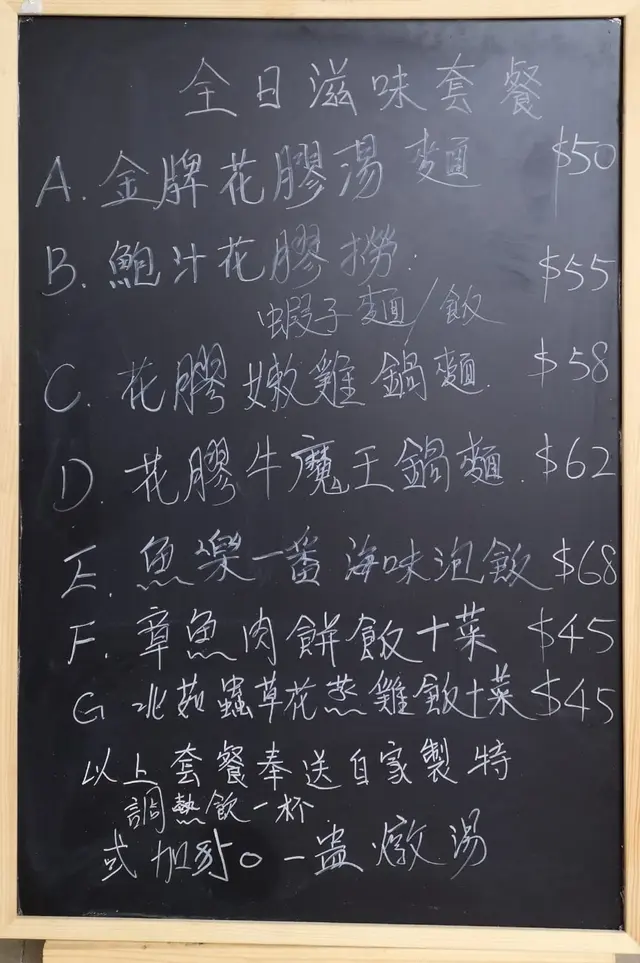 全日滋味套餐
A. 金牌花膠湯麵 $50
B. 鮑汁花膠撈: $55
蝦子麵/飯
C. 花膠嫩雞鍋麵. $58
D. 花膠牛魔王鍋麵. $62
E. 魚樂一番海味泡飯 $68
F. 章魚肉餅飯+菜 $45
G 北菇蟲草花蒸雞飯+菜 $45
以上套餐奉送自家製特
調熱飲一杯
或加 一盅燉湯